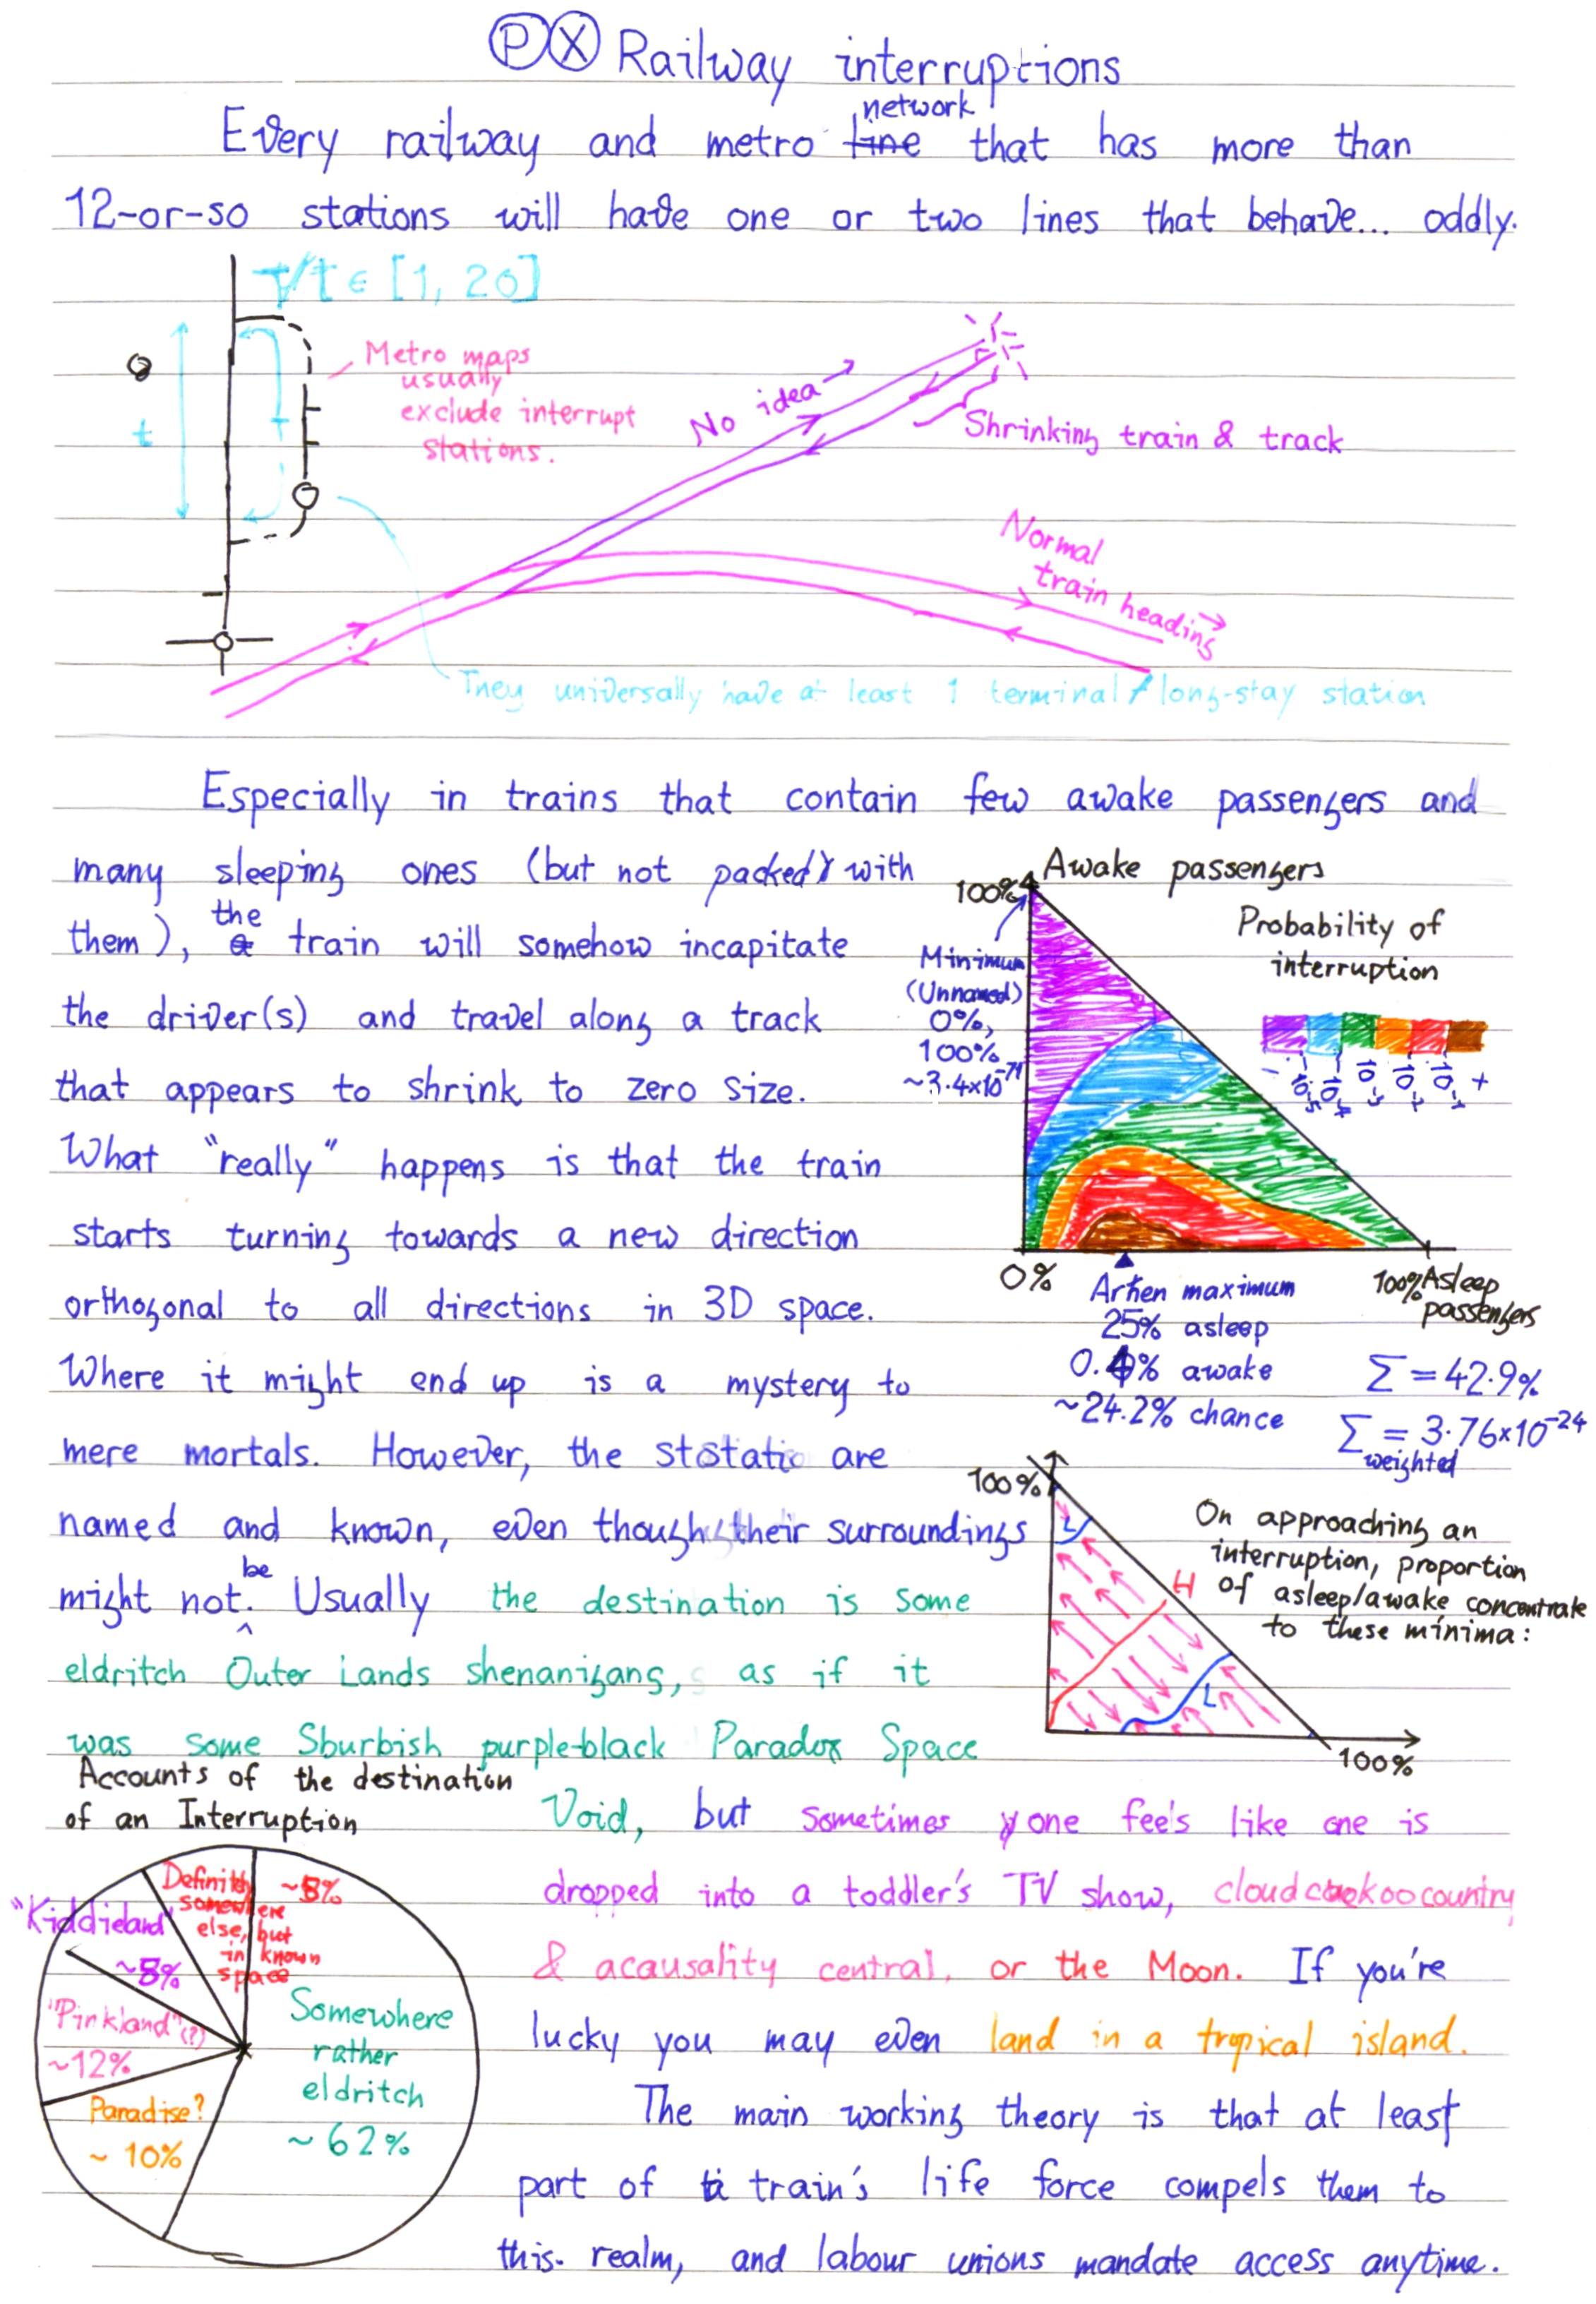 PX Railway interruptions
network
Every railway and metro line that has more than
12-or-so stations will have one or two lines that behave... oddly.
T/t ∈ [1, 20]
Metro maps
usually
exclude interrupt
stations.
t
T
No idea
Shrinking train & track
Normal
train heading
They universally have at least 1 terminal / long-stay station
Especially in trains that contain few awake passengers and
many sleeping ones (but not packed) with
them), the a train will somehow incapitate
the driver(s) and travel along a track
that appears to shrink to zero size.
What "really" happens is that the train
starts turning towards a new direction
orthogonal to all directions in 3D space.
Where it might end up is a mystery to
mere mortals. However, the ststatio are
named and known, even though their surroundings
might not be. Usually the destination is some
eldritch Outer Lands shenanigans, as if it
was some Sburbish purple-black Paradox Space
Void, but sometimes y one feels like one is
dropped into a toddler's TV show, cloudcuckoocountry
& acausality central, or the Moon. If you're
lucky you may even land in a tropical island.
The main working theory is that at least
part of a train's life force compels them to
this realm, and labour unions mandate access anytime.
100%
Awake passengers
Probability of
interruption
Minimum
(Unnamed)
0%,
100%
~3.4×10⁻⁷¹
-
+
0%
100% Asleep
passengers
Arken maximum
25% asleep
0.4% awake
~24.2% chance
Σ = 42.9%
Σ = 3.76×10⁻²⁴
weighted
100%
L
H
L
100%
On approaching an
interruption, proportion
of asleep/awake concentrate
to these minima:
Accounts of the destination
of an Interruption
Definitely
somewhere
else, but
in known
space
~8%
"Kiddieland"
~8%
"Pinkland" (?)
~12%
Paradise?
~ 10%
Somewhere
rather
eldritch
~62%